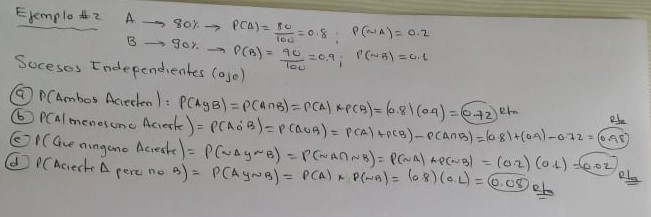 Ejemplo #2 A → 80% → P(A) = 80/100 = 0.8 ; P(~A) = 0.2
B → 90% → P(B) = 90/100 = 0.9 ; P(~B) = 0.1
Sucesos Independientes (ojo)
(a) P(Ambos Acierten) = P(A y B) = P(A∩B) = P(A) * P(B) = (0.8)(0.9) = 0.72 Rta
(b) P(Al menos uno Acierte) = P(A ó B) = P(A∪B) = P(A) + P(B) - P(A∩B) = (0.8) + (0.9) - 0.72 = 0.98 Rta
(c) P(Que ninguno Acierte) = P(~A y ~B) = P(~A∩~B) = P(~A) * P(~B) = (0.2)(0.1) = 0.02 Rta
(d) P(Acierte A pero no B) = P(A y ~B) = P(A) * P(~B) = (0.8)(0.1) = 0.08 Rta